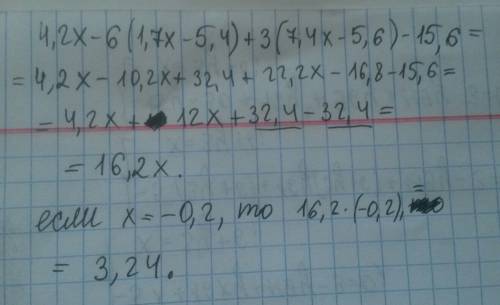 4,2x-6(1,7x-5,4)+3(7,4x-5,6)-15,6=
=4,2x-10,2x+32,4+22,2x-16,8-15,6=
=4,2x+ 12x+32,4-32,4=
=16,2x.
если x=-0,2, то 16,2·(-0,2), =
= 3,24.